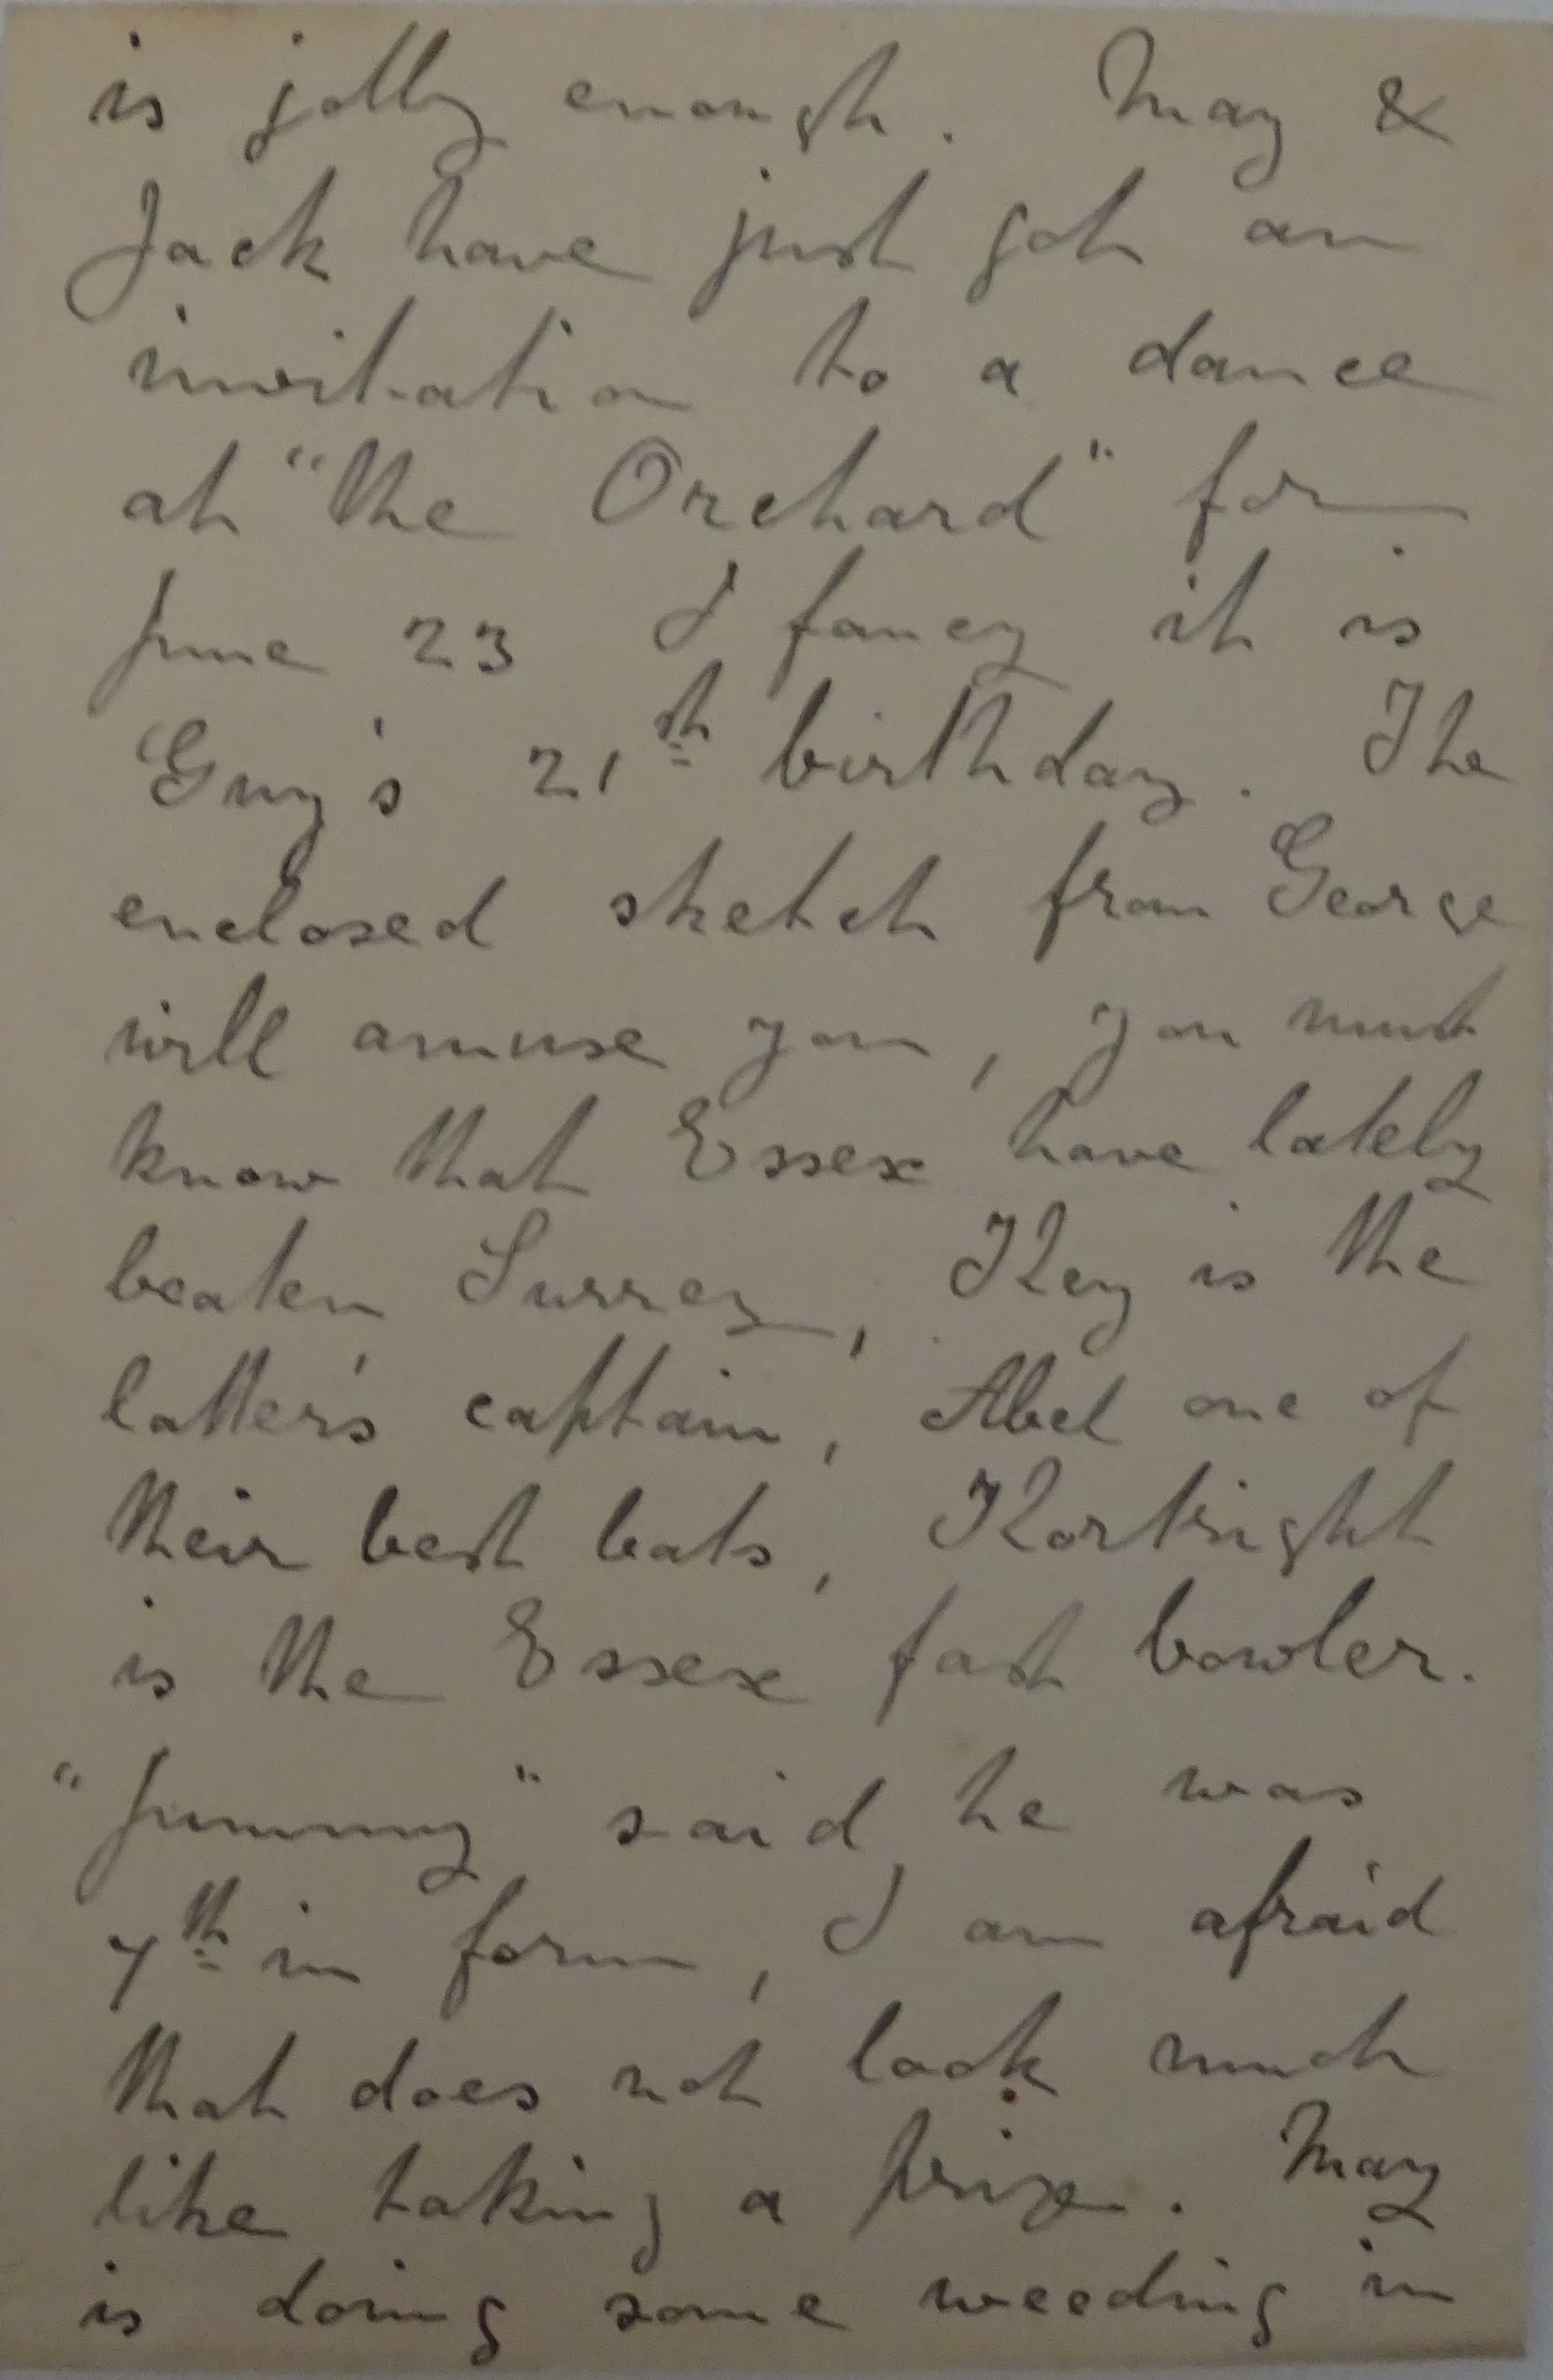 is jolly enough. May &
Jack have just got an
invitation to a dance
at "the Orchard" for
June 23 I fancy it is
Guy's 21th birthday. The
enclosed sketch from George
will amuse you, you must
know that Essex have lately
beaten Surrey, Key is the
latter's captain, Abel one of
their best bats, Kortright
is the Essex fast bowler.
"Jummy" said he was
7th in form, I am afraid
that does not look much
like taking a prize. May
is doing some weeding in